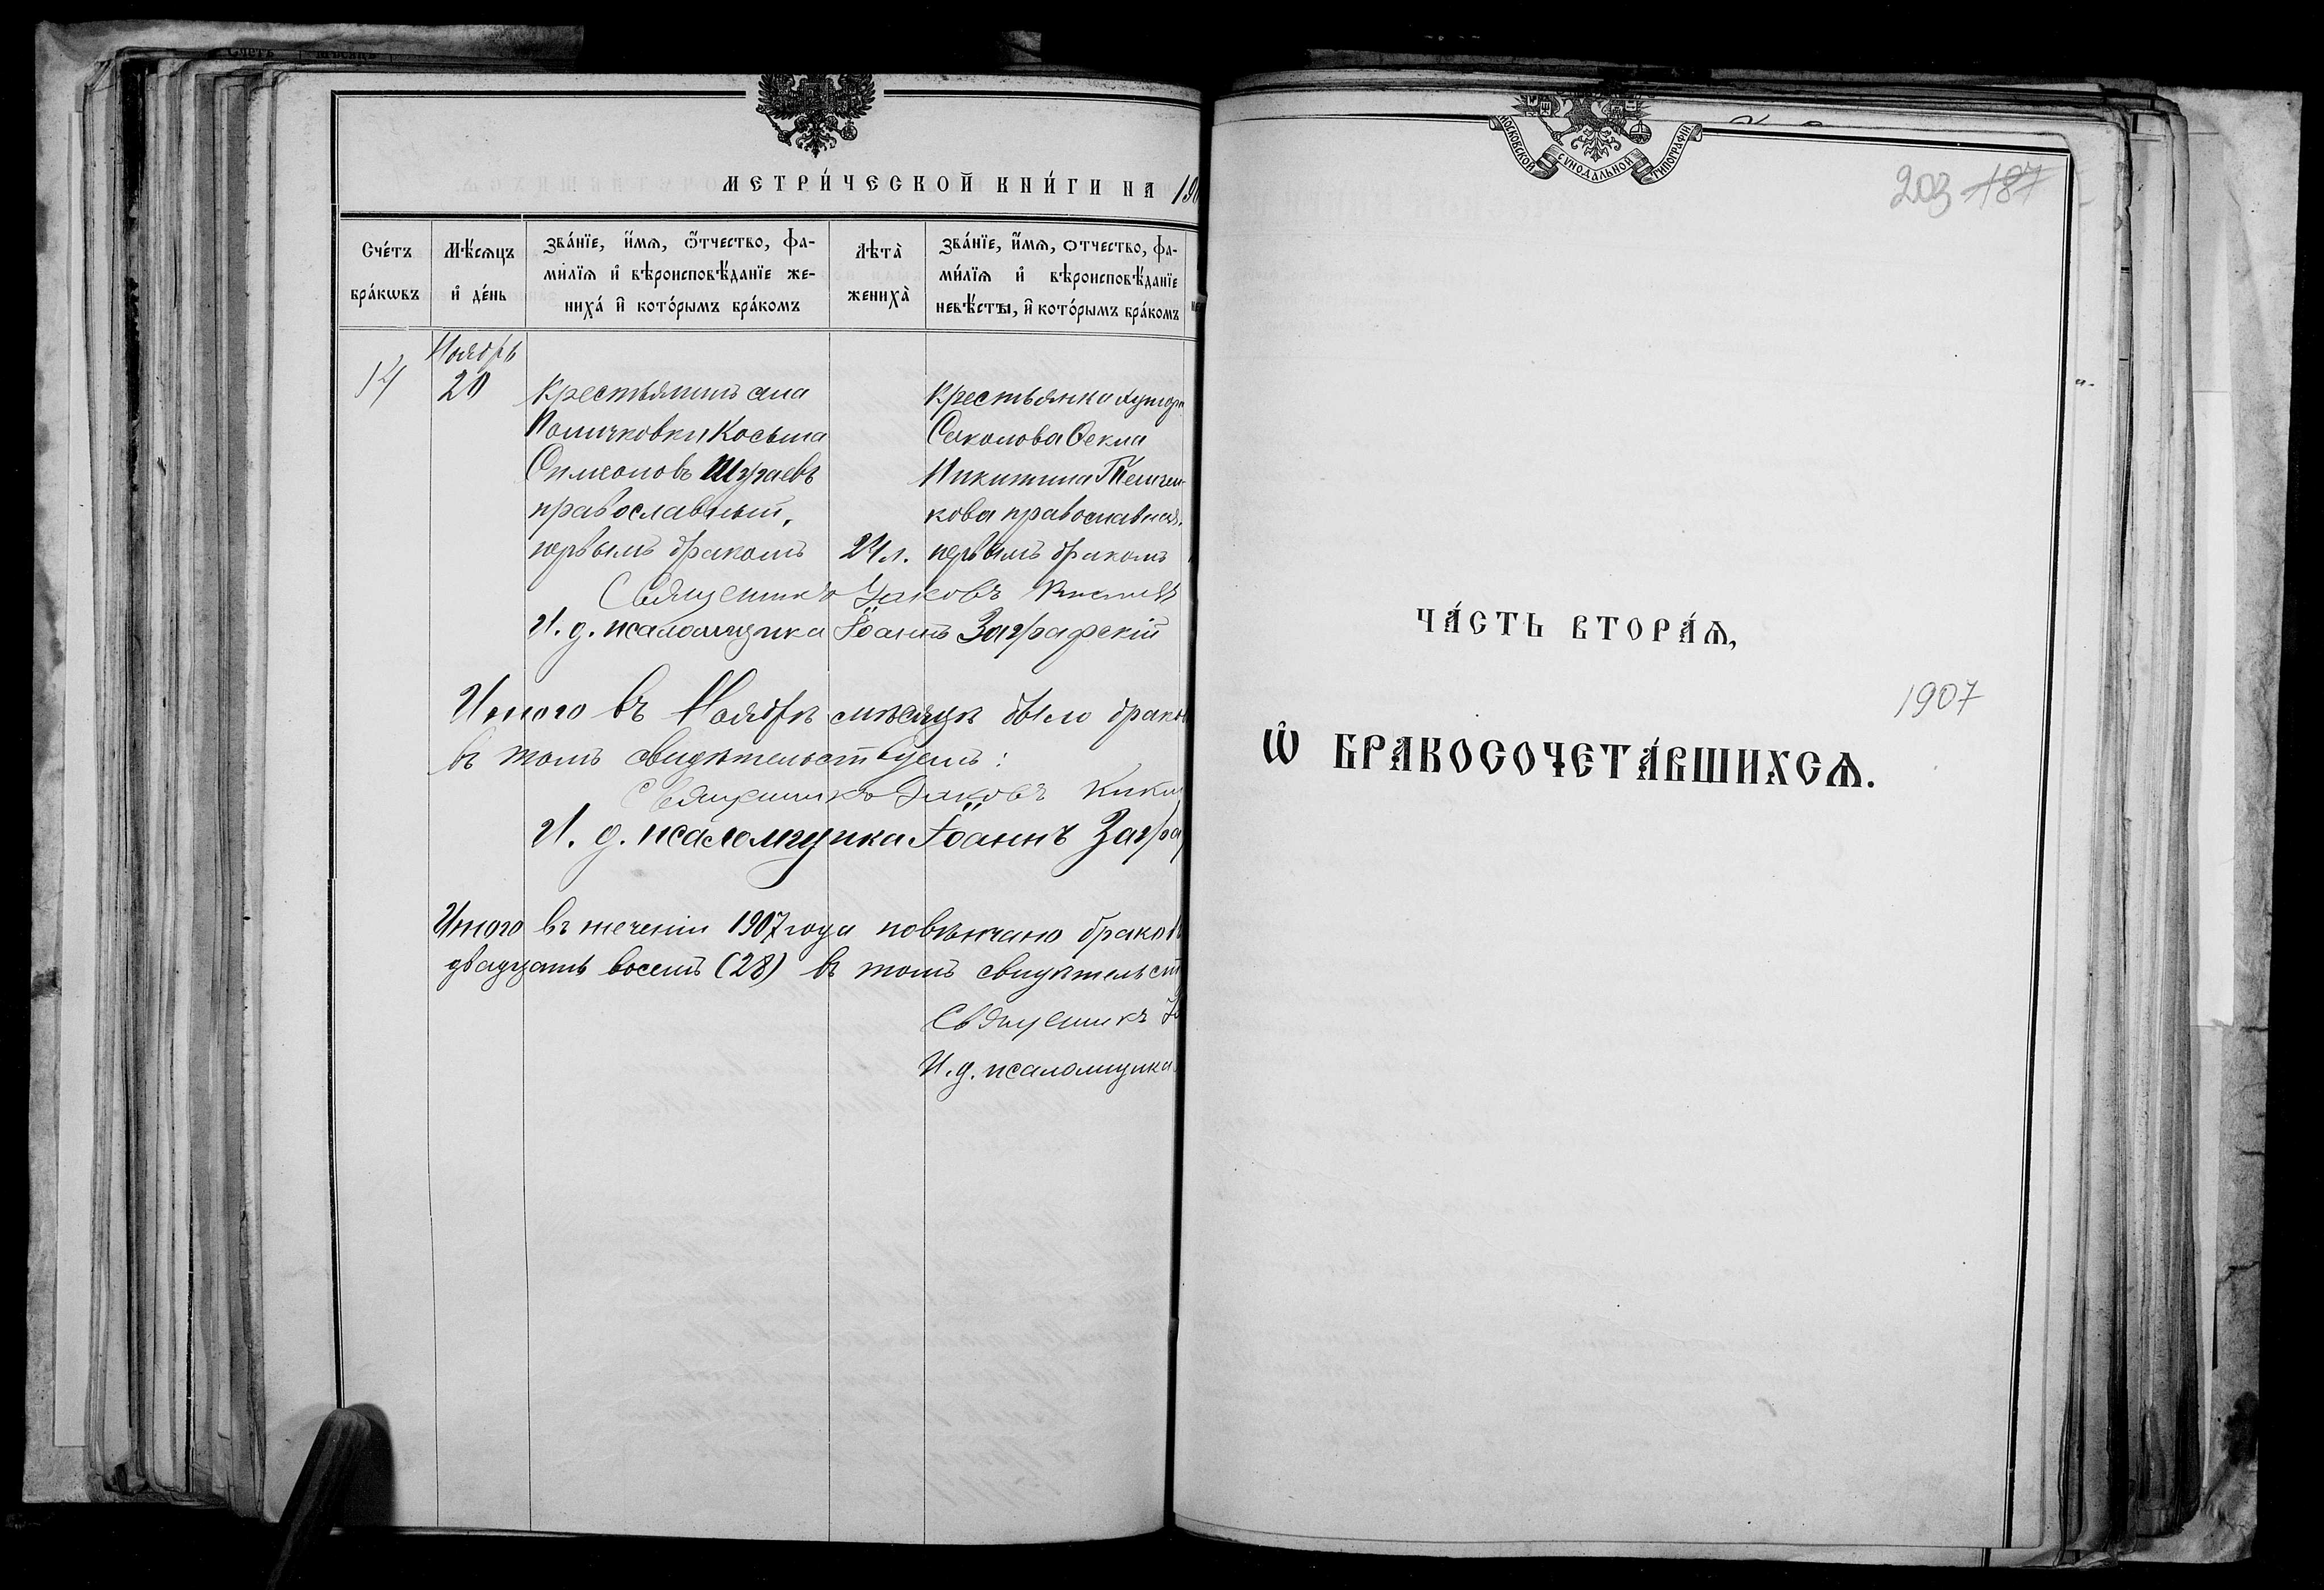 МЕТРИ́ЧЕСКОЙ КНИ́ГИ НА 190
Сче́тъ бра́кѡвъ
Мѣ́сѧцъ и҆ де́нь
Зва́нїе, и҆́мѧ, ѻ҆́тчество, фа-
ми́лїѧ и҆ вѣроисповѣ́данїе же-
ниха́ и҆ кото́рымъ бра́комъ
Лѣта̀ жениха̀
Зва́нїе, и҆́мѧ, отчество, фа-
ми́лїѧ и҆ вѣроисповѣ́данїе
невѣ́сты, и҆ кото́рымъ бра́комъ
Ноябрь
14
20
Крестьянинъ села
Косьма
Симеоновъ Шураевъ
православный,
первымъ бракомъ
24 л.
Крестьянка хутора
Соколова Ѳекла
Никитина
кова православная,
первымъ бракомъ
Священникъ Іаковъ
И. д. псаломщика Іоаннъ Заграфскій
Итого въ Ноябрѣ мѣсяцѣ было брако
въ томъ свидѣтельствуемъ:
Священникъ Іаковъ
И. д. псаломщика Іоаннъ Загра
Итого въ теченіи 1907 года повѣнчано браковъ
двадцать восемь (28) въ томъ свидѣтельст
Священникъ
И. д. псаломщика
МОСКОВСКОЙ СѴНОДАЛЬНОЙ ТИПОГРАФІИ
203 187
ЧА́СТЬ ВТОРА́Ѧ,
1907
Ѡ҆ БРАКОСОЧЕТА́ВШИХСѦ.